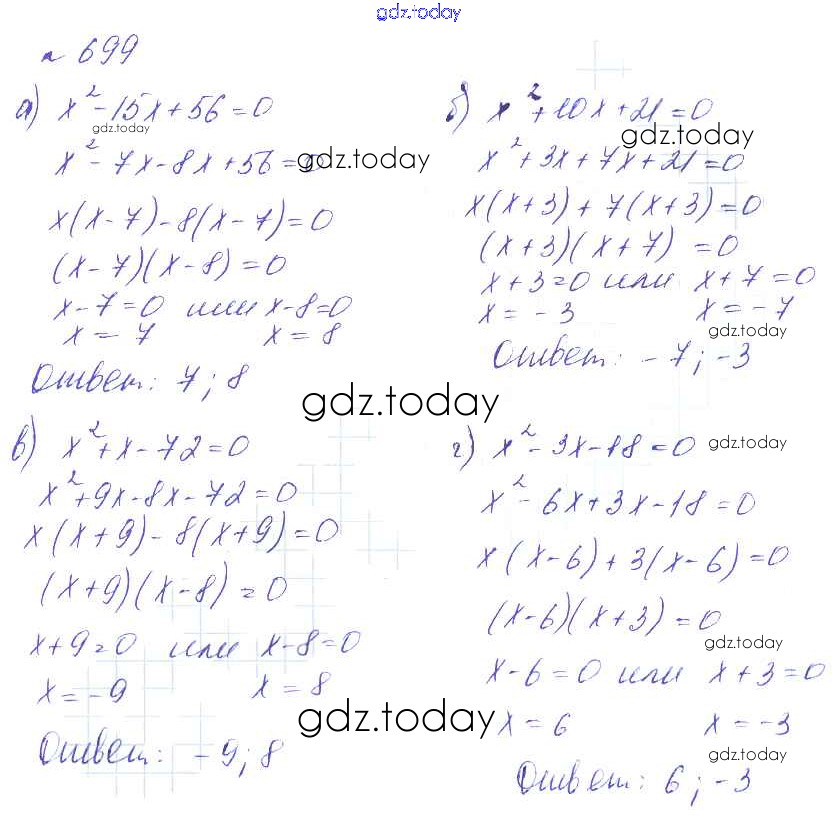 gdz.today
№ 699
а) x² - 15x + 56 = 0
gdz.today
x² - 7x - 8x + 56 = 0
gdz.today
x(x - 7) - 8(x - 7) = 0
(x - 7)(x - 8) = 0
x - 7 = 0 или x - 8 = 0
x = 7 x = 8
Ответ: 7; 8
б) x² + 10x + 21 = 0
gdz.today
x² + 3x + 7x + 21 = 0
x(x + 3) + 7(x + 3) = 0
(x + 3)(x + 7) = 0
x + 3 = 0 или x + 7 = 0
x = - 3 x = - 7
gdz.today
Ответ: - 7; -3
gdz.today
в) x² + x - 72 = 0
x² + 9x - 8x - 72 = 0
x(x + 9) - 8(x + 9) = 0
(x + 9)(x - 8) = 0
x + 9 = 0 или x - 8 = 0
x = -9 x = 8
gdz.today
Ответ: - 9; 8
г) x² - 3x - 18 = 0
gdz.today
x² - 6x + 3x - 18 = 0
x(x - 6) + 3(x - 6) = 0
(x - 6)(x + 3) = 0
gdz.today
x - 6 = 0 или x + 3 = 0
x = 6 x = -3
gdz.today
Ответ: 6; -3